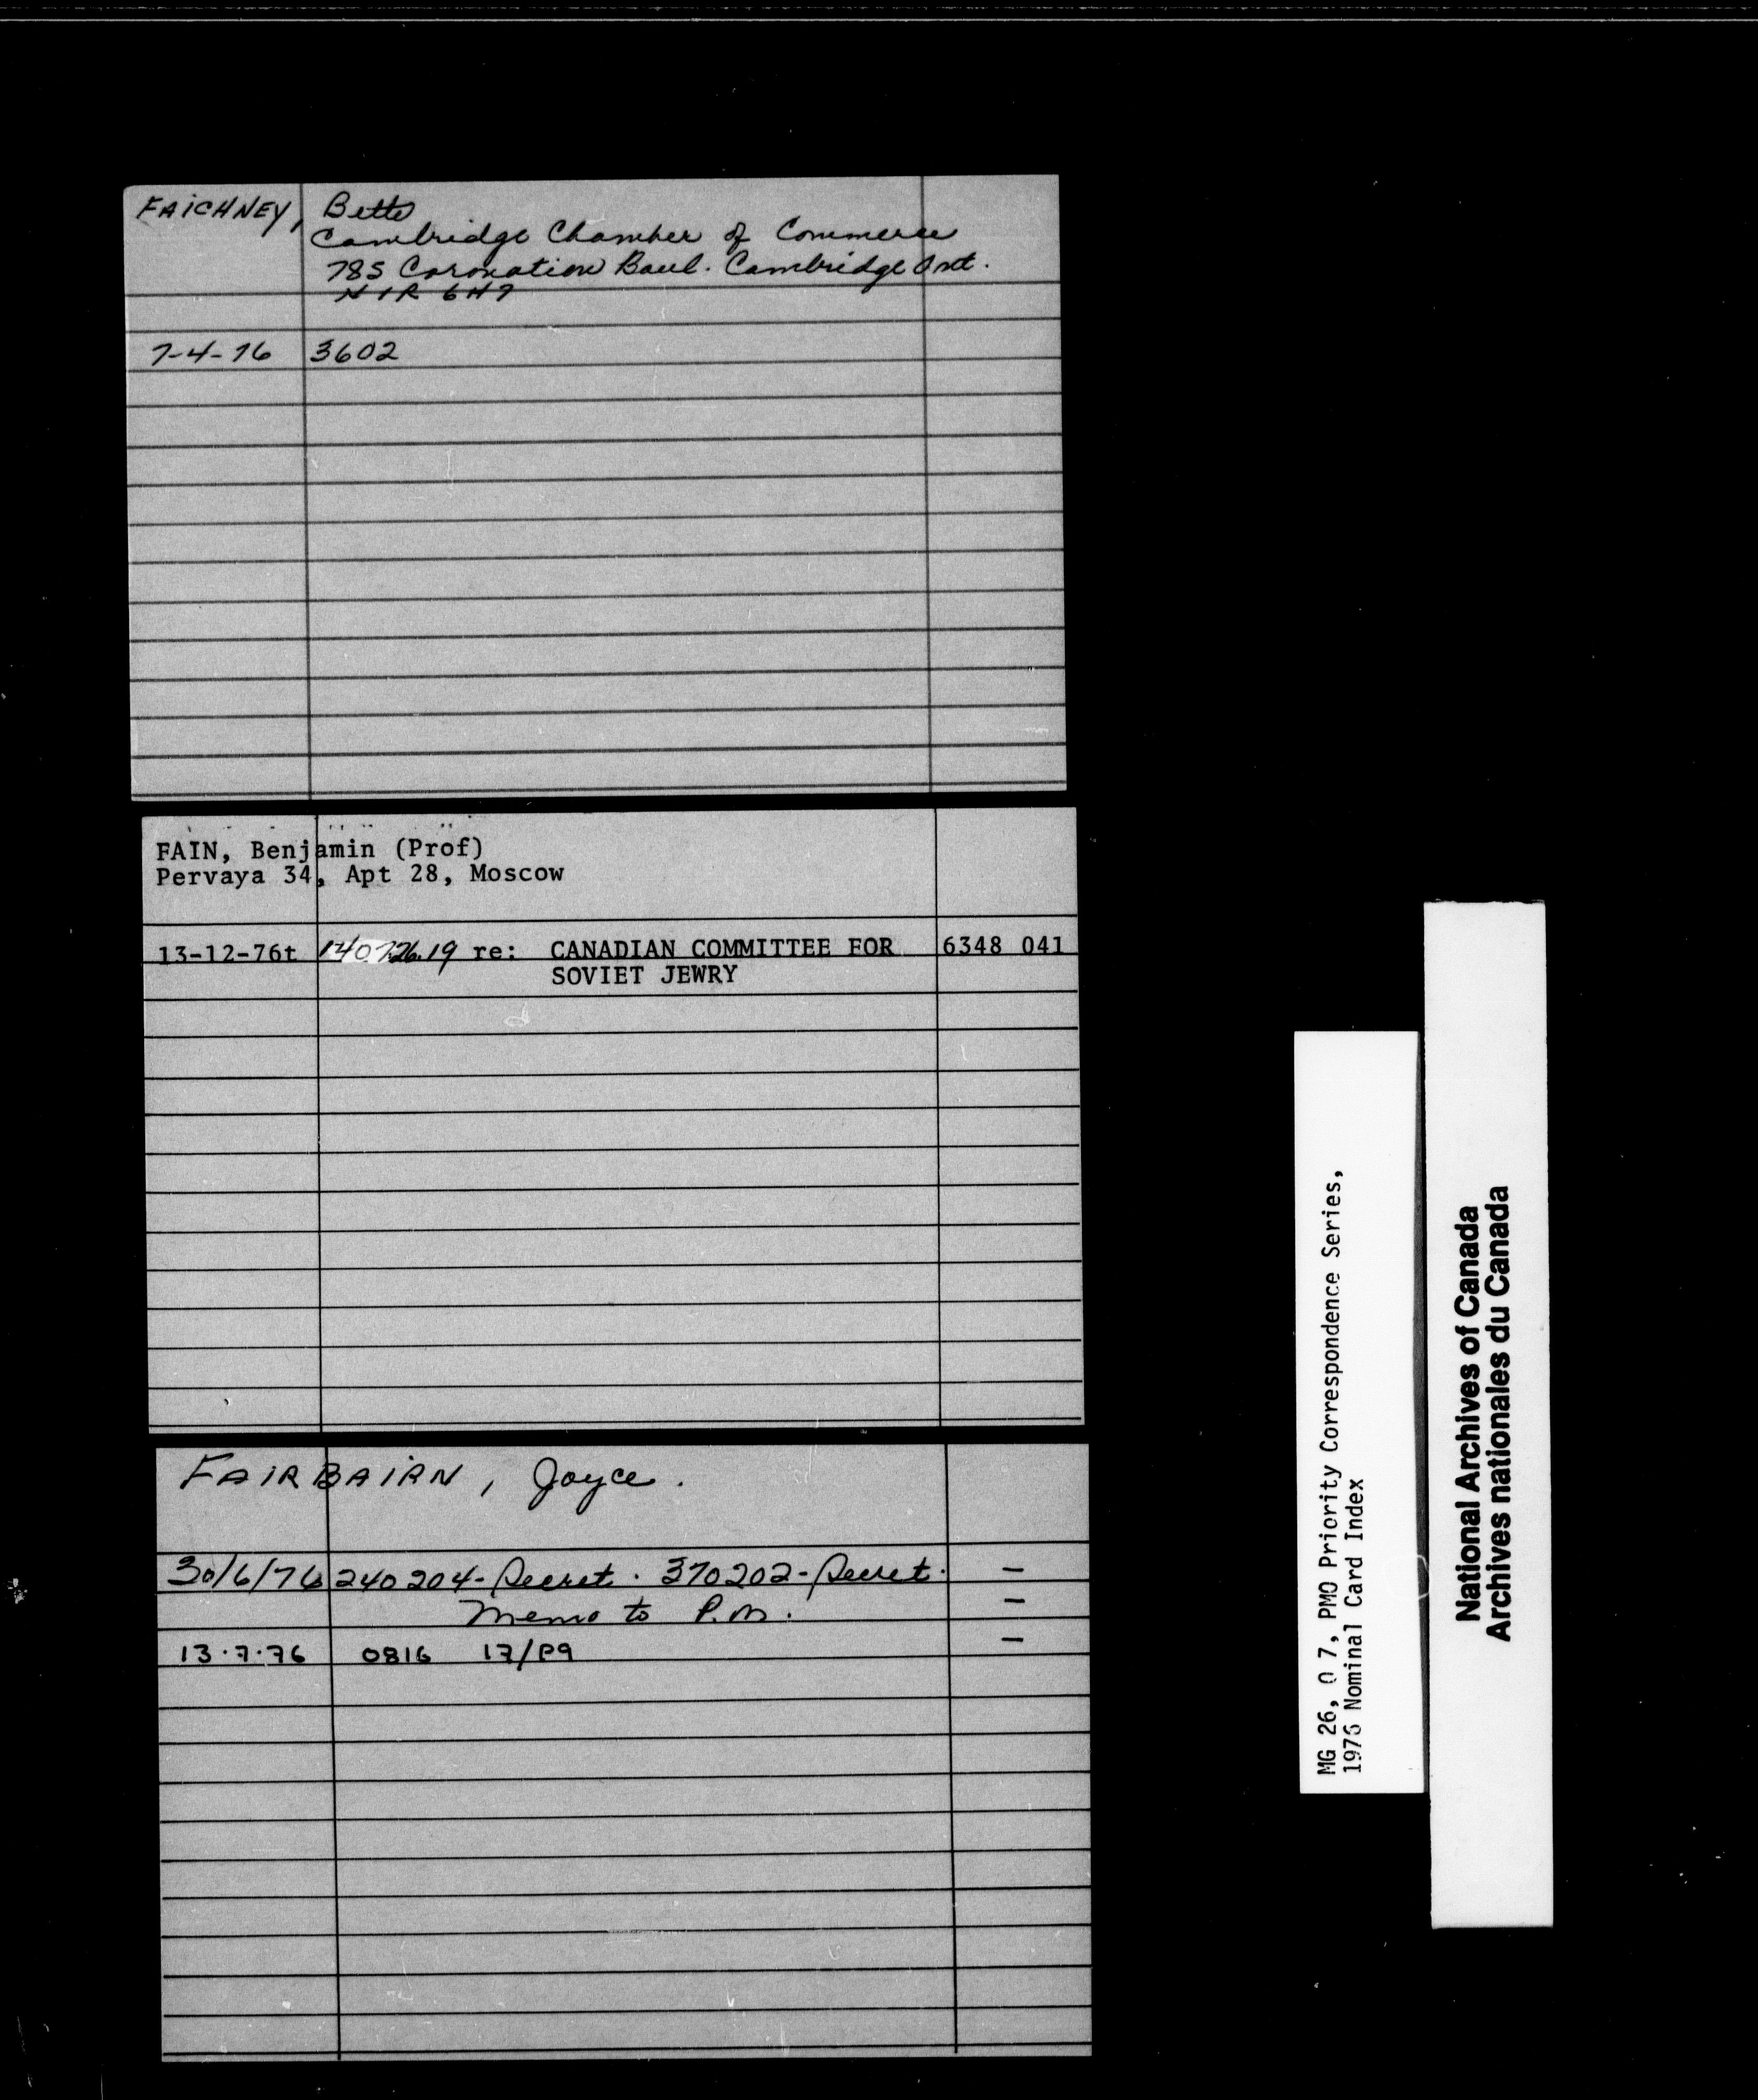 FAICHNEY, Bette
Cambridge Chamber of Commerce
785 Coronation Boul. Cambridge Ont.
N1R 6H7
7-4-76 3602
FAIN, Benjamin (Prof)
Pervaya 34, Apt 28, Moscow
13-12-76t 140726.19 re: CANADIAN COMMITTEE FOR 6348 041
SOVIET JEWRY
FAIRBAIRN, Joyce.
30/6/76 240204-Secret. 370202-Secret. —
Memo to P.M. —
13.7.76 0816 17/P9 —
MG 26, O 7, PMO Priority Correspondence Series,
1976 Nominal Card Index
National Archives of Canada
Archives nationales du Canada